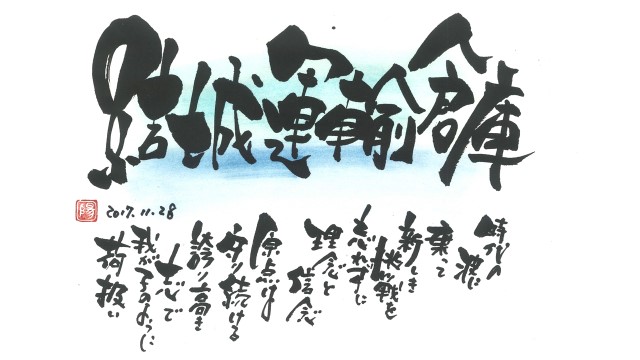 結城運輸倉庫
時代の
波に
乗って
新しき
挑戦を
忘れずに
理念と
信念
原点は
守り続ける
誇り高き
志で
我が子のように
荷扱い
2017.11.28
陽